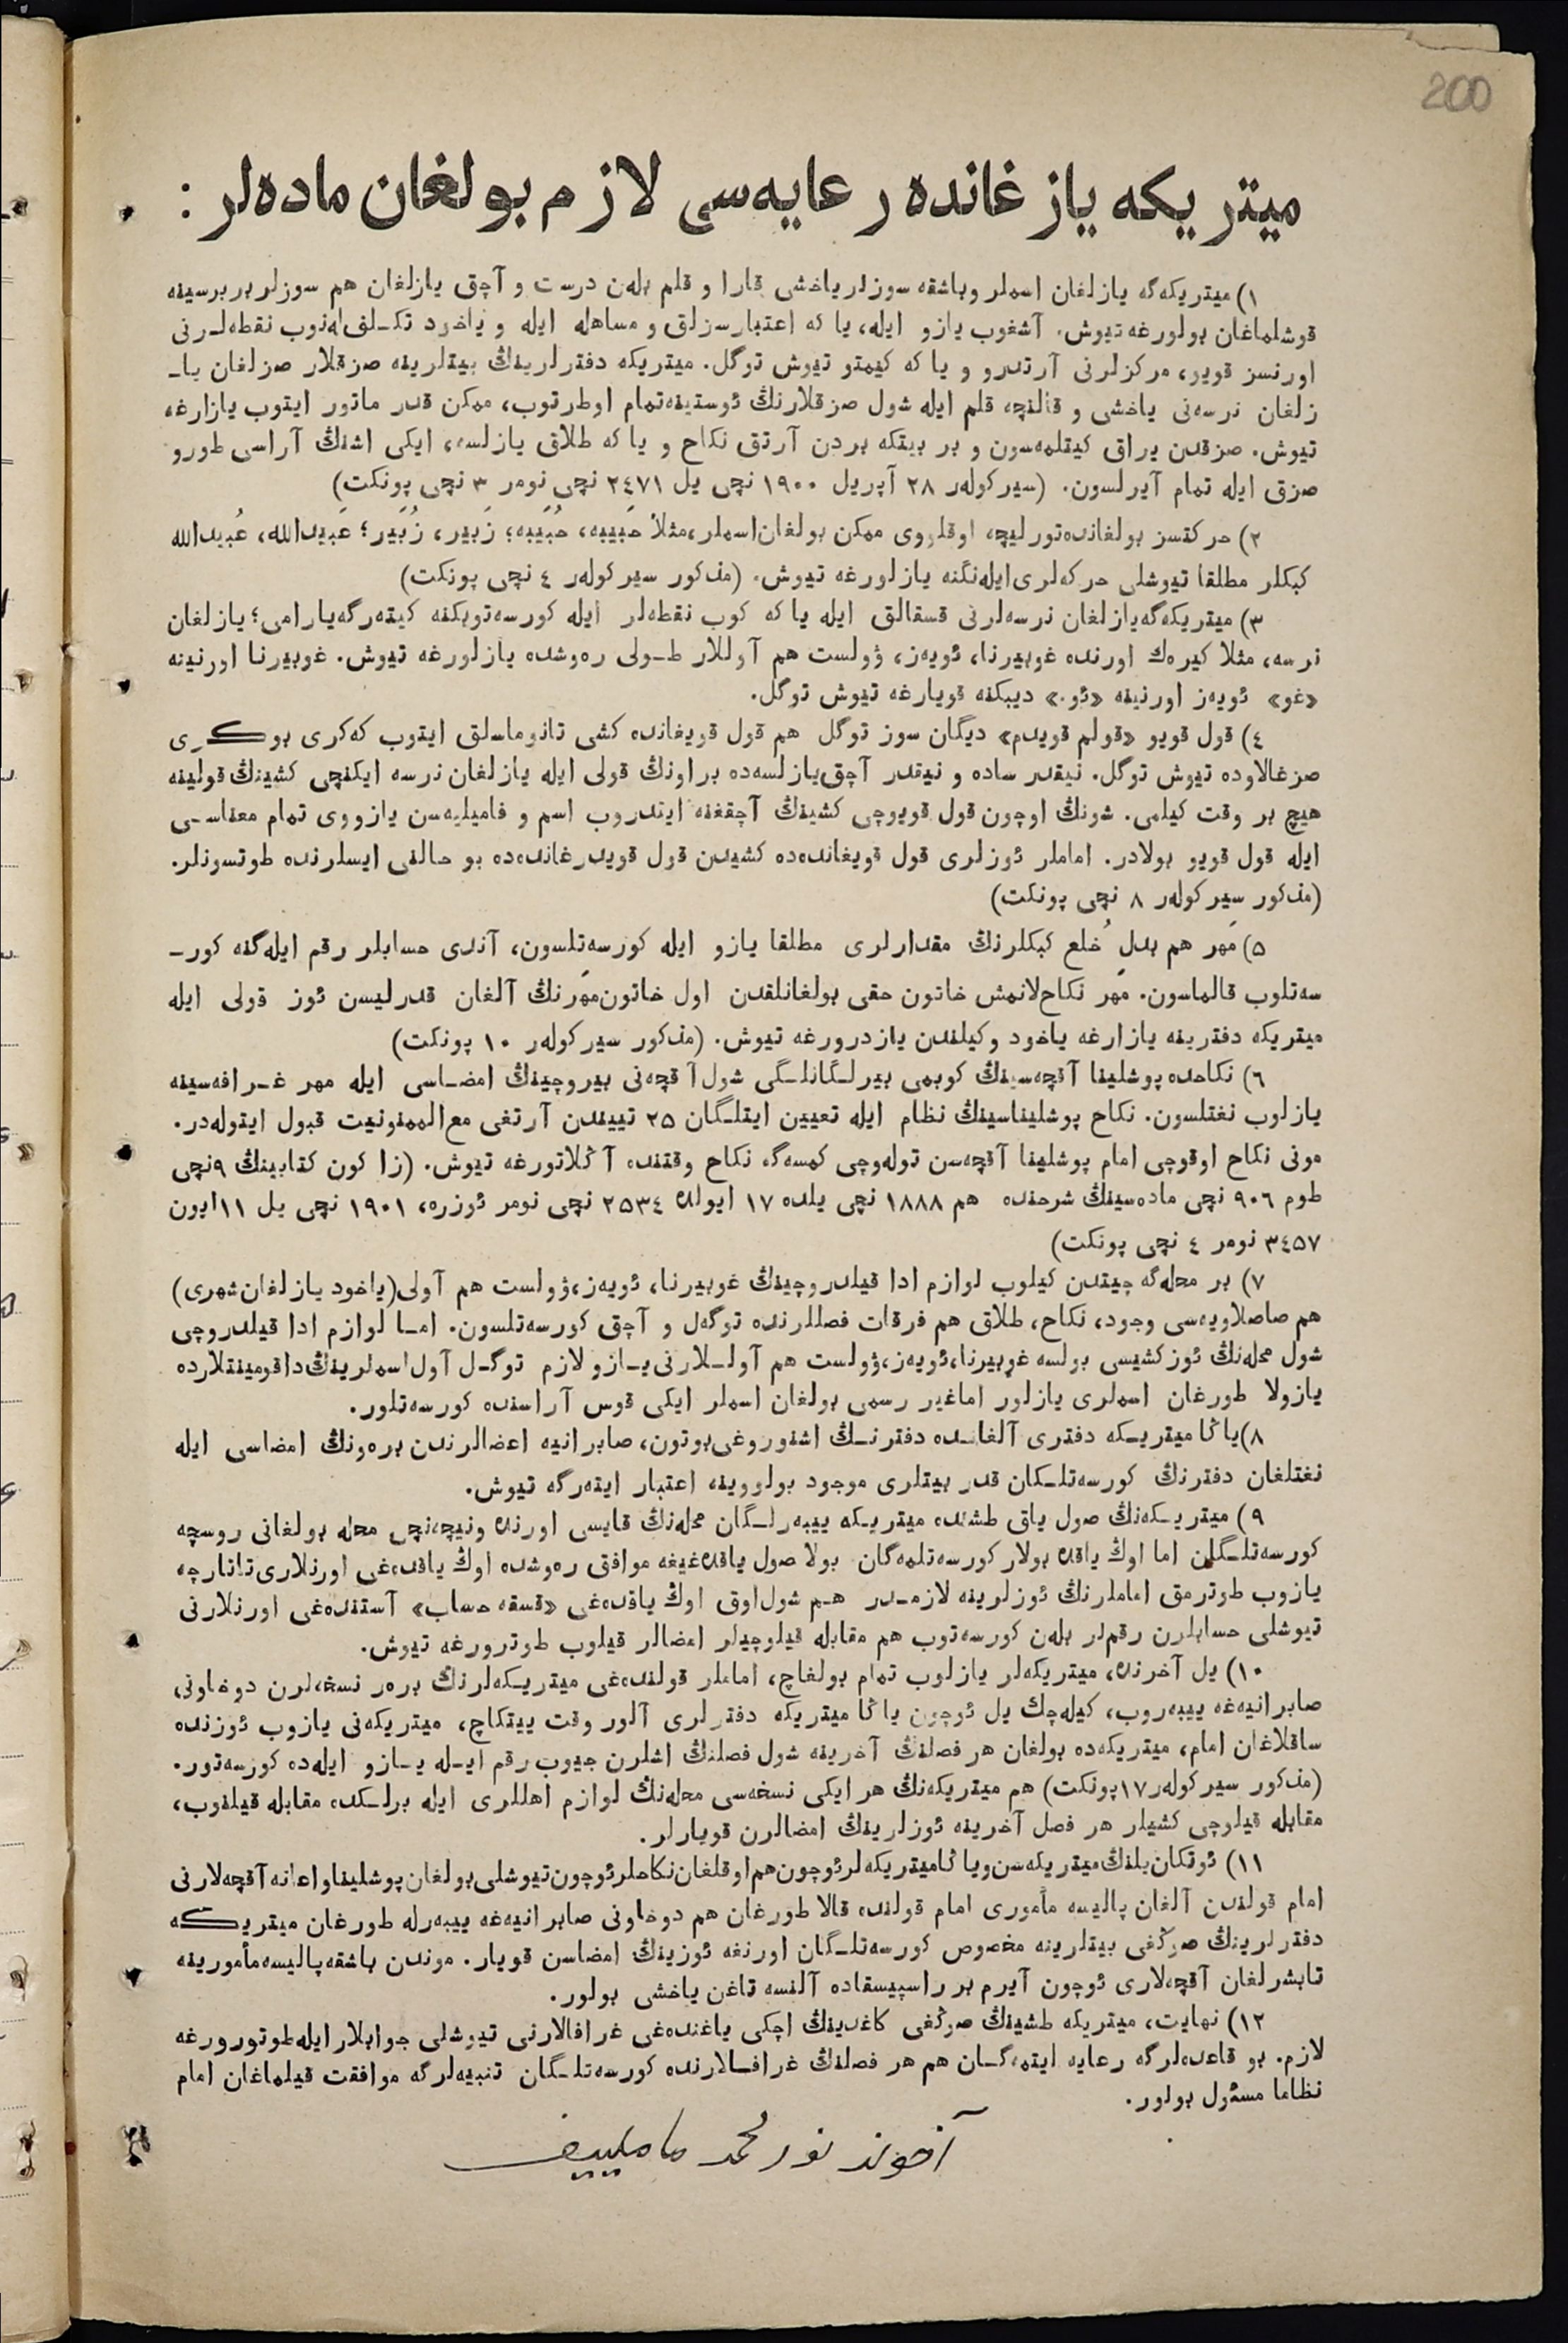 200
میتریکه یازغانده رعایه‌سی لازم بولغان ماده‌لر :
۱) میتریکه‌گه یازلغان اسملر وباشقه سوزلر یاخشی قارا و قلم بله‌ن درست و آچق یازلغان هم سوزلر بربرسینه
قوشلماغان بولورغه تیوش. آشغوب یازو ایله، یا که اعتبارسزلق و مساهله ایله و یاخود تکـلفله‌نوب نقطه‌لـرنی
اورنسز قویو، مرکزلرنی آرتدرو و یا که کیمتو تیوش توگل. میتریکه دفترلرینڭ بیتلرینه صزقلار صزلغان یا‌ـ
زلغان نرسه‌نی یاخشی و قالنچه قلم ایله شول صزقلارنڭ ئوستینه‌تمام اوطرتوب، ممکن قدر ماتور ایتوب یازارغه
تیوش. صزقدن یراق کیتلمه‌سون و بر بیتکه بردن آرتق نکاح و یا که طلاق یازلسه، ایکی اشنڭ آراسی طورو
صزق ایله تمام آیرلسون. (سیرکولەر ۲۸ آپریل ۱۹۰۰ نچی یل ۲٤۷۱ نچی نومر ۳ نچی پونکت)
۲) حرکتسز بولغانده‌تورلیچه اوقلووی ممکن بولغان‌اسملر،مثلاً حَبیبه، حُبَیبه؛ زَبیر، زُبَیر؛ عَبیدالله، عُبیدالله
کبکلر مطلقا تیوشلی حرکه‌لری‌ایله‌نگنه یازلورغه تیوش. (مذکور سیرکولەر ٤ نچی پونکت)
۳) میتریکه‌گه‌یازلغان نرسه‌لرنی قسقالق ایله یا که کوب نقطه‌لر ایله کورسه‌توبکنه کیته‌رگه‌یارامی؛ یازلغان
نرسه، مثلا کیره‌ك اورنده غوبیرنا، ئویه‌ز، ۋولست هم آوللار طـولی ره‌وشده یازلورغه تیوش. غوبیرنا اورنینه
«غو» ئویه‌ز اورنینه «ئو.» دیبکنه قویارغه تیوش توگل.
٤) قول قویو «قولم قویدم» دیگان سوز توگل هم قول قویغانده کشی تانوماسلق ایتوب که‌کری بوکـری
صزغالاوده تیوش توگل. نیقدر ساده و نیقدر آچق‌یازلسه‌ده براونڭ قولی ایله یازلغان نرسه ایکنچی کشینڭ قولینه
هیچ بر وقت کیلمی. شونڭ اوچون قول قویوچی کشینڭ آچقغنه ایتدروب اسم و فامیلیه‌سن یازووی تمام معناسـی
ایله قول قویو بولادر. اماملر ئوزلری قول قویغانده‌ده کشیدن قول قویدرغانده‌ده بو حالنی ایسلرنده طوتسونلر.
(مذکور سیرکولەر ۸ نچی پونکت)
۵) مَهر هم بدل خُلع کبکلرنڭ مقدارلری مطلقا یازو ایله کورسه‌تلسون، آندی حسابلر رقم ایله‌گنه کورـ
سه‌تلوب قالماسون. مهر نکاح‌لانمش خاتون حقی بولغانلقدن اول خاتون‌مهرنڭ آلغان قدرلیسن ئوز قولی ایله
میتریکه دفترینه یازارغه یاخود وکیلندن یازدرورغه تیوش. (مذکور سیرکولەر ۱۰ پونکت)
٦) نکاحده پوشلینا آقچه‌سینڭ کوبمی بیرلگانلـگی شول آقچه‌نی بیروچینڭ امضـاسی ایله مهر غـرافه‌سینه
یازلوب نغتلسون. نکاح پوشلیناسینڭ نظام ایله تعیین ایتلـگان ۲۵ تییندن آرتغی مع‌الممنونیت قبول ایتوله‌در.
مونی نکاح اوقوچی امام پوشلینا آقچه‌سن توله‌وچی کمسه‌گه نکاح وقتنده آڭلاتورغه تیوش. (زاکون کتابینڭ ۹نچی
طوم ۹۰٦ نچی ماده‌سینڭ شرحنده هم ۱۸۸۸ نچی یلده ۱۷ ایولده ۲۵۳٤ نچی نومر ئوزره، ۱۹۰۱ نچی یل ۱۱ایون
۳٤۵۷ نومر ٤ نچی پونکت)
۷) بر محله‌گه چیتدن کیلوب لوازم ادا قیلدروچینڭ غوبیرنا، ئویه‌ز،ۋولست هم آولی(یاخود یازلغان‌شهری)
هم صاصلاویه‌سی وجود، نکاح، طلاق هم فرقات فصللرنده توگه‌ل و آچق کورسه‌تلسون. امـا لوازم ادا قیلدروچی
شول محله‌نڭ ئوزکشیسی بولسه غوبیرنا،ئویه‌ز،ۋولست هم آولـلارنی‌یـازو لازم توگـل آول‌اسملرینڭ‌داقومینتلارده
یازولا طورغان اسملری یازلور اماغیر رسمی بولغان اسملر ایکی قوس آراسنده کورسه‌تلور.
۸)یاڭا میتریـکه دفتری آلغانـده دفترنـڭ اشنوروغی‌بوتون، صابرانیه اعضالرندن بره‌ونڭ امضاسی ایله
نغتلغان دفترنڭ کورسه‌تلـکان قدر بیتلری موجود بولووینه اعتبار ایته‌رگه تیوش.
۹) میتریـکه‌نڭ صول یاق طشنده میتریـکه ییبه‌رلـگان محله‌نڭ قایسی اورنده ونیچه‌نچی محله بولغانی روسچه
کورسه‌تلـگان اما اوڭ یاقده بولار کورسه‌تلمه‌گان بولا صول یاقده‌غیغه موافق ره‌وشده اوڭ یاقده‌غی اورنلاری‌تاتارچه
یازوب طوترمق اماملرنڭ ئوزلرینه لازمـدر هـم شول‌اوق اوڭ یاقده‌غی «قسقه حساب» آستنده‌غی اورنلارنی
تیوشلی حسابلرن رقملر بله‌ن کورسه‌توب هم مقابله قیلوچیلر امضالر قیلوب طوترورغه تیوش.
۱۰) یل آخرنده، میتریکه‌لر یازلوب تمام بولغاچ، اماملر قولنده‌غی میتریـکه‌لرنڭ بره‌ر نسخه‌لرن دوخاونی
صابرانیه‌غه ییبه‌روب، کیله‌چك یل ئوچون یاڭا میتریکه دفترلری آلور وقت ییتکاچ، میتریکه‌نی یازوب ئوزنده
ساقلاغان امام، میتریکه‌ده بولغان هر فصلنڭ آخرینه شول فصلنڭ اشلرن جیوب رقم ایـله یـازو ایله‌ده کورسه‌تور.
(مذکور سیرکولەر ۱۷پونکت) هم میتریکه‌نڭ هر ایکی نسخه‌سی محله‌نڭ لوازم اهللری ایله برلـکده مقابله قیلنوب،
مقابله قیلوچی کشیلر هر فصل آخرینه ئوزلرینڭ امضالرن قویارلر.
۱۱) ئوتکان‌یلنڭ‌میتریکه‌سن‌ویاڭامیتریکه‌لرئوچون‌هم‌اوقلغان‌نکاحلرئوچون‌تیوشلی‌بولغان‌پوشلیناواعانه آقچه‌لارنی
امام قولندن آلغان پالیسه مأموری امام قولنده قالا طورغان هم دوخاونی صابرانیه‌غه ییبه‌رله طورغان میتریـکه
دفترلرینڭ صوڭغی بیتلرینه مخصوص کورسه‌تلـگان اورنغه ئوزینڭ امضاسن قویار. موندن باشقه‌پالیسه‌مأمورینه
تابشرلغان آقچه‌لاری ئوچون آیرم بر راسپیسقاده آلنسه تاغن یاخشی بولور.
۱۲) نهایت، میتریکه طشینڭ صوڭغی کاغدینڭ اچکی یاغنده‌غی غرافالارنی تیوشلی جوابلار ایله‌طوتورورغه
لازم. بو قاعده‌لرگه رعایه ایتمه‌گـان هم هر فصلنڭ غرافـالارنده کورسه‌تلـگان تنبیه‌لرگه موافقت قیلماغان امام
نظاما مسئول بولور.
آخوند نورمحمد ماملییف